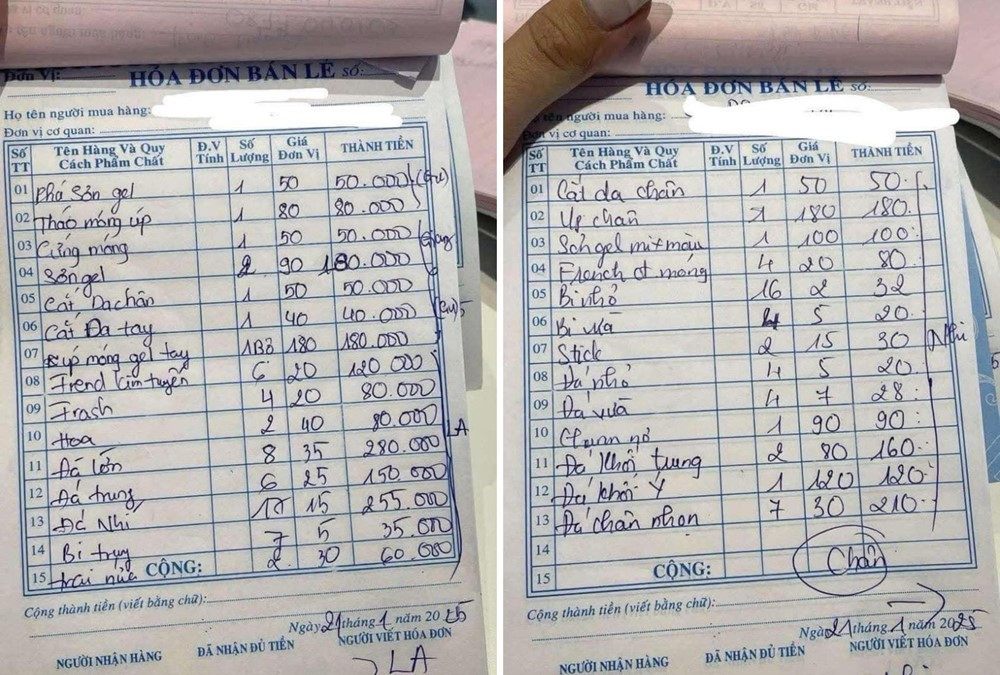 Đơn Vị:
HÓA ĐƠN BÁN LẺ SỐ:
Họ tên người mua hàng:
Đơn vị cơ quan:
Số TT Tên Hàng Và Quy Cách Phẩm Chất Đ.V Tính Số Lượng Giá Đơn Vị THÀNH TIỀN
01 Phá sơn gel 1 50 50.000
02 Tháo móng úp 1 80 80.000
03 Cứng móng 1 50 50.000
04 Sơn gel 2 90 180.000
05 Cắt Da chân 1 50 50.000
06 Cắt Da tay 1 40 40.000
07 úp móng gel tay 1Bộ 180 180.000
08 Frend kim tuyến 6 20 120 000
09 Frash 4 20 80.000
10 Hoa 2 40 80.000
11 Đá lớn 8 35 280.000
12 Đá trung 6 25 150.000
13 Đá Nhí 17 15 255.000
14 Bi trụ 7 5 35.000
15 trái 2 30 60.000
LA
CỘNG:
Cộng thành tiền (viết bằng chữ):
Ngày 21 tháng 1 năm 2025
NGƯỜI NHẬN HÀNG ĐÃ NHẬN ĐỦ TIỀN NGƯỜI VIẾT HÓA ĐƠN
LA
HÓA ĐƠN BÁN LẺ SỐ:
tên người mua hàng:
vị cơ quan:
Số TT Tên Hàng Và Quy Cách Phẩm Chất Đ.V Tính Số Lượng Giá Đơn Vị THÀNH TIỀN
01 Cắt da chân 1 50 50
02 Úp chân 1 180 180
03 Sơn gel mix màu 1 100 100
04 French móng 4 20 80
05 Bi nhỏ 16 2 32
06 Bi vừa 4 5 20
07 Stick 2 15 30
08 Đá nhỏ 4 5 20
09 Đá vừa 4 7 28
10 nơ 1 90 90
11 Đá khối trung 2 80 160
12 Đá khối Ý 1 120 120
13 Đá chân nhọn 7 30 210
Nhi
14
15 CỘNG: Chân
Cộng thành tiền (viết bằng chữ):
Ngày 21 tháng 1 năm 2025
NGƯỜI NHẬN HÀNG ĐÃ NHẬN ĐỦ TIỀN NGƯỜI VIẾT HÓA ĐƠN